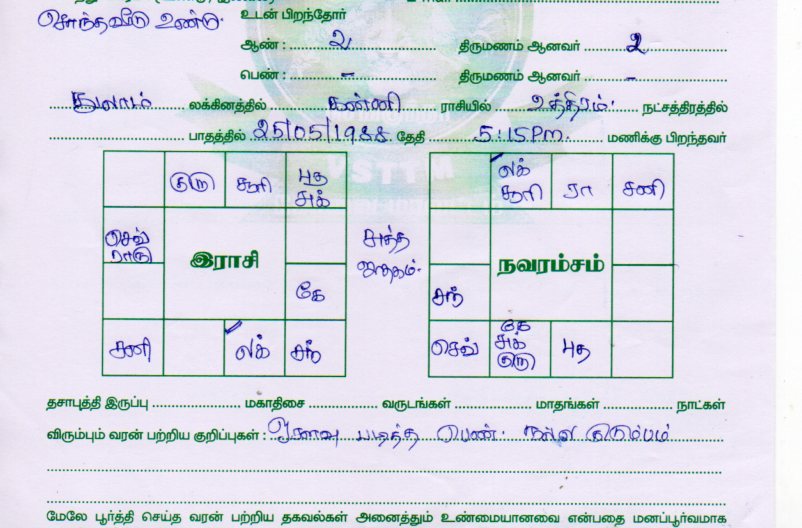 சொந்தவீடு உண்டு. உடன் பிறந்தோர்
ஆண் : 2 திருமணம் ஆனவர் 2
பெண் : - திருமணம் ஆனவர் -
துலாம் லக்கினத்தில் கன்னி ராசியில் உத்திரம் நட்சத்திரத்தில்
பாதத்தில் 25/05/1988 தேதி 5:15PM மணிக்கு பிறந்தவர்
குரு சூரி புத சுக்
லக் சூரி ரா சனி
செவ் ராகு
இராசி
சுத்த ஜாதகம்.
நவரம்சம்
கே
சந்
சனி லக் சந்
செவ் கே சுக் குரு புத
தசாபுத்தி இருப்பு மகாதிசை வருடங்கள் மாதங்கள் நாட்கள்
விரும்பும் வரன் பற்றிய குறிப்புகள் : ஓரளவு படித்த பெண். நல்ல குடும்பம்
மேலே பூர்த்தி செய்த வரன் பற்றிய தகவல்கள் அனைத்தும் உண்மையானவை என்பதை மனப்பூர்வமாக